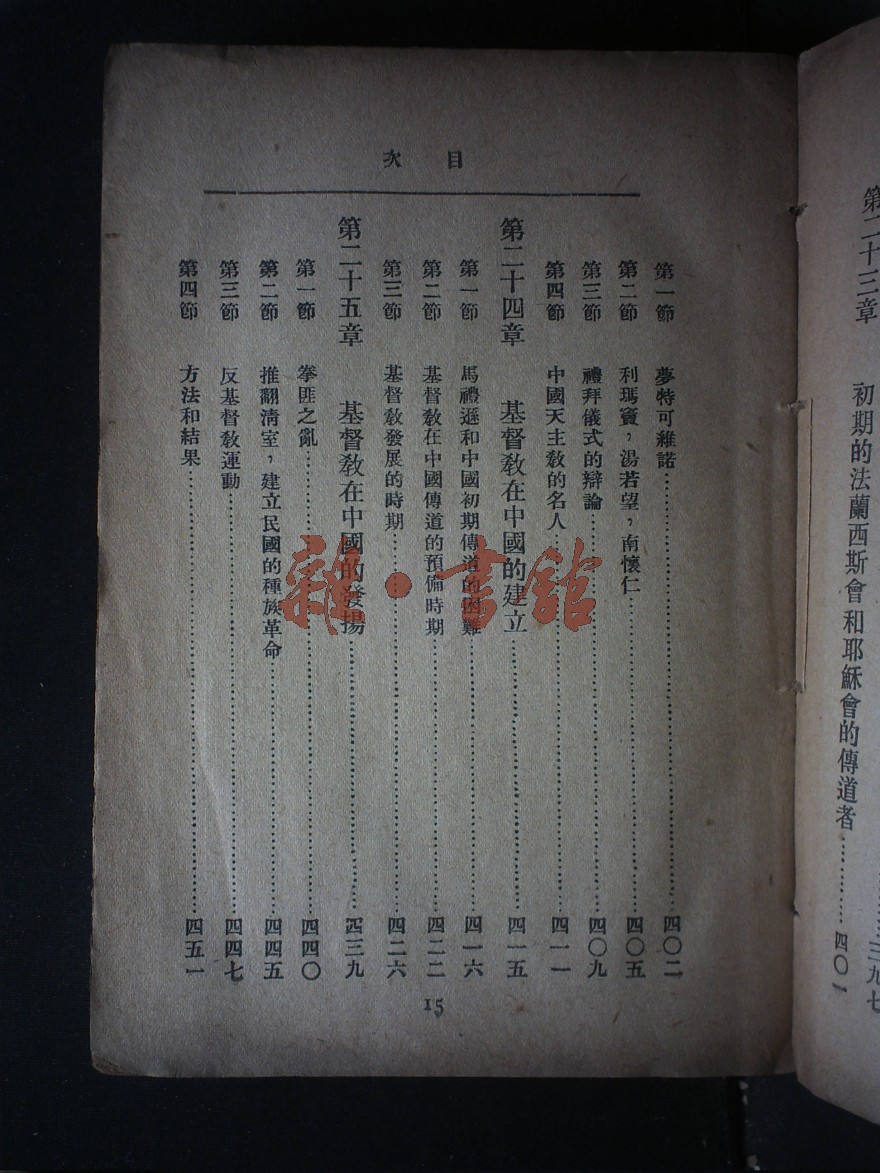 第二十三章　初期的法蘭西斯會和耶穌會的傳道者…………四〇一
目次
第一節　夢特可維諾…………四〇二
第二節　利瑪竇，湯若望，南懷仁…………四〇五
第三節　禮拜儀式的辯論…………四〇九
第四節　中國天主敎的名人…………四一一
第二十四章　基督敎在中國的建立…………四一五
第一節　馬禮遜和中國初期傳道的困難…………四一六
第二節　基督敎在中國傳道的預備時期…………四二二
第三節　基督敎發展的時期…………四二六
第二十五章　基督敎在中國的發揚…………四三九
第一節　拳匪之亂…………四四〇
第二節　推翻淸室，建立民國的種族革命…………四四五
第三節　反基督敎運動…………四四七
第四節　方法和結果…………四五一
15
雜·書館